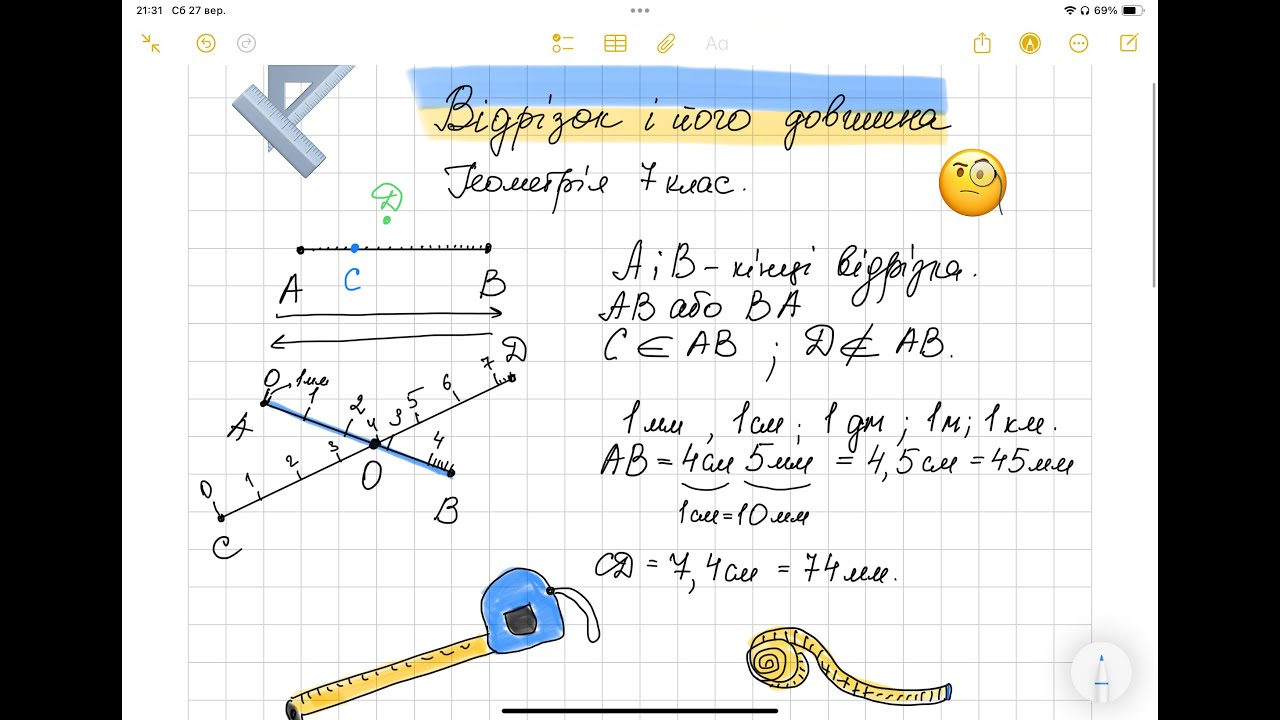 21:31 Сб 27 вер.
69%
Aa
Відрізок і його довжина
Геометрія 7 клас.
D
A C B
A і B – кінці відрізка.
AB або BA
C ∈ AB ; D ∉ AB.
D
0 1мм 1 2 3 4
A
0 1 2 3 4 5 6 7
O
B
C
1мм , 1см ; 1дм ; 1м ; 1км.
AB = 4см 5мм = 4,5см = 45мм
1см = 10мм
CD = 7,4см = 74мм.